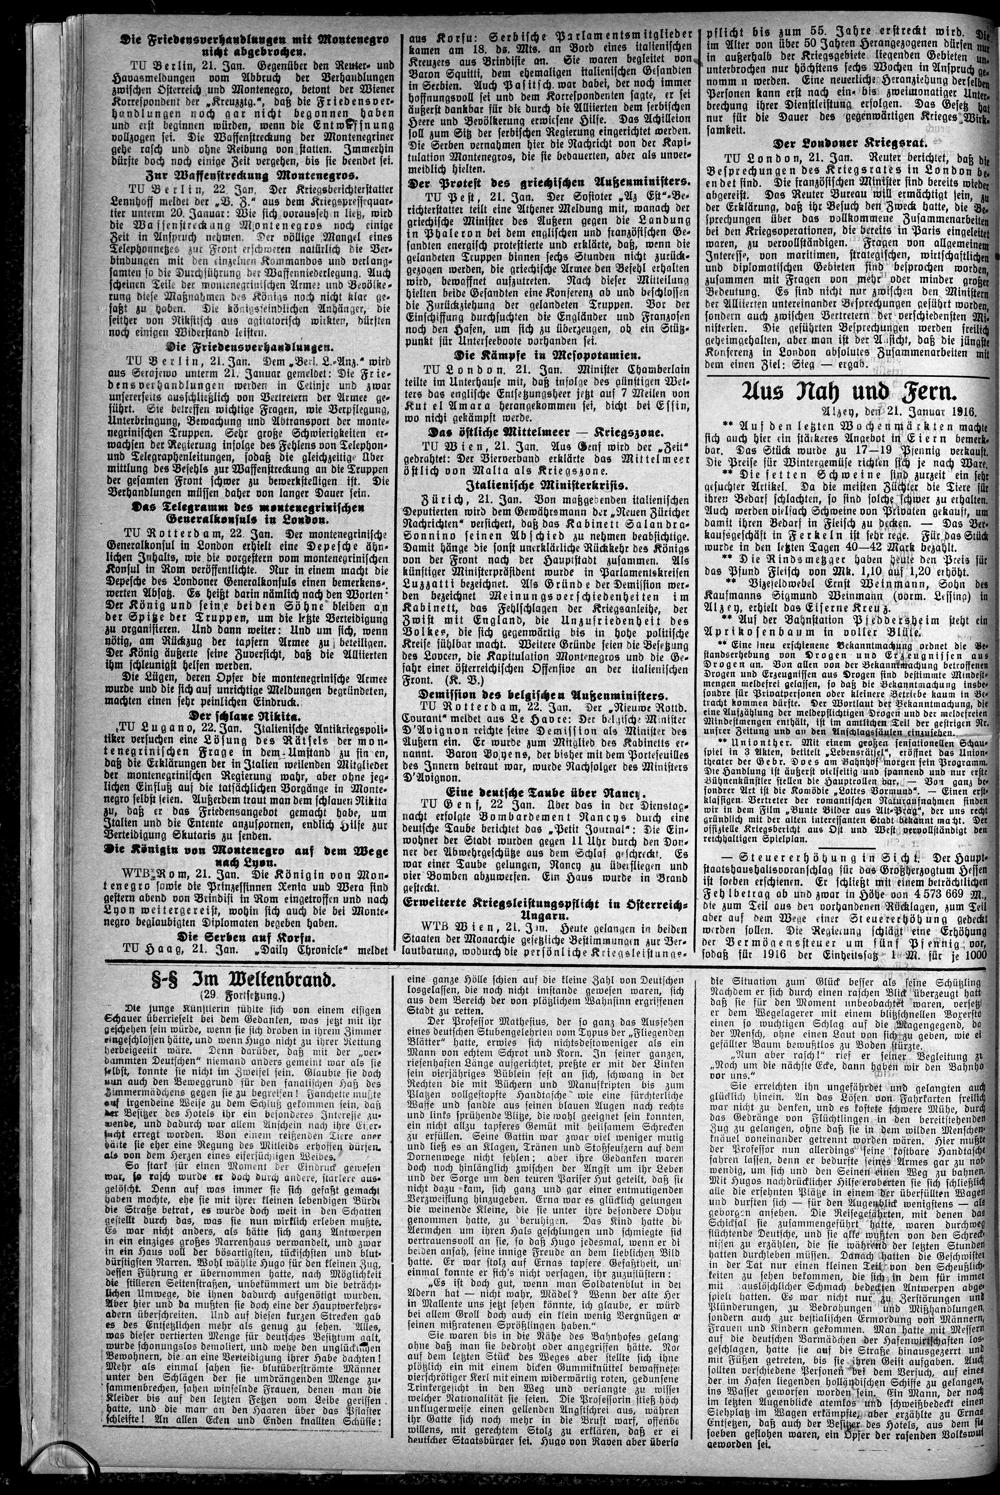 Die Friedensverhandlungen mit Montenegro
nicht abgebrochen.
TU Berlin, 21. Jan. Gegenüber den Reuter- und
Havasmeldungen vom Abbruch der Verhandlungen
zwischen Österreich und Montenegro, betont der Wiener
Korrespondent der „Kreuzztg.“, daß die Friedensver-
handlungen noch gar nicht begonnen haben
und erst beginnen würden, wenn die Entwaffnung
vollzogen sei. Die Waffenstreckung der Montenegriner
gehe rasch und ohne Reibung von statten. Immerhin
dürfte doch noch einige Zeit vergehen, bis sie beendet sei.
Zur Waffenstreckung Montenegros.
TU Berlin, 22. Jan. Der Kriegsberichterstatter
Lennhoff meldet der „B. Z.“ aus dem Kriegspressequar-
tier unterm 20. Januar: Wie sich voraussehen ließ, wird
die Waffenstreckung Montenegros noch einige
Zeit in Anspruch nehmen. Der völlige Mangel eines
Telephonnetzes zur Front erschweren natürlich die Ver-
bindungen mit den einzelnen Kommandos und verlang-
samten so die Durchführung der Waffenniederlegung. Auch
scheinen Teile der montenegrinischen Armee und Bevölke-
rung diese Maßnahmen des Königs noch nicht klar ge-
faßt zu haben. Die königsfeindlichen Anhänger, die
seither von Nikitsch aus agitatorisch wirkten, dürften
noch einigen Widerstand leisten.
Die Friedensverhandlungen.
TU Berlin, 21. Jan. Dem „Berl. L.-Anz.“ wird
aus Serajewo unterm 21. Januar gemeldet: Die Frie-
densverhandlungen werden in Cetinje und zwar
unsererseits ausschließlich von Vertretern der Armee ge-
führt. Sie betreffen wichtige Fragen, wie Verpflegung,
Unterbringung, Bewachung und Abtransport der monte-
negrinischen Truppen. Sehr große Schwierigkeiten er-
wachsen der Regierung infolge des Fehlens von Telephon-
und Telegraphenleitungen, sodaß die gleichzeitige Über
mittlung des Befehls zur Waffenstreckung an die Truppen
der gesamten Front schwer zu bewerkstelligen ist. Die
Verhandlungen müssen daher von langer Dauer sein.
Das Telegramm des montenegrinischen
Generalkonsuls in London.
TU Rotterdam, 22. Jan. Der montenegrinische
Generalkonsul in London erhielt eine Depesche ähn-
lichen Inhalts, wie die vorgestern vom montenegrinischen
Konsul in Rom veröffentlichte. Nur in einem macht die
Depesche des Londoner Generalkonsuls einen bemerkens-
werten Absatz. Es heißt darin nämlich nach den Worten:
Der König und seine beiden Söhne bleiben an
der Spitze der Truppen, um die letzte Verteidigung
zu organisieren. Und dann weiter: Und um sich, wenn
nötig, am Rückzug der tapfern Armee zu beteiligen.
Der König äußerte seine Zuversicht, daß die Alliierten
ihm schleunigst helfen werden.
Die Lügen, deren Opfer die montenegrinische Armee
wurde und die sich auf unrichtige Meldungen begründeten,
machten einen sehr peinlichen Eindruck.
Der schlaue Nikita.
TU Lugano, 22. Jan. Italienische Antikriegspoli-
tiker versuchen eine Lösung des Rätsels der mon-
tenegrinischen Frage in dem Umstand zu finden,
daß die Erklärungen der in Italien weilenden Mitglieder
der montenegrinischen Regierung wahr, aber ohne jeg-
lichen Einfluß auf die tatsächlichen Vorgänge in Monte-
negro selbst seien. Außerdem traut man dem schlauen Nikita
zu, daß er das Friedensangebot gemacht habe, um
Italien und die Entente anzuspornen, endlich Hilfe zur
Verteidigung Skutaris zu senden.
Die Königin von Montenegro auf dem Wege
nach Lyon.
WTB Rom, 21. Jan. Die Königin von Mon-
tenegro sowie die Prinzessinnen Xenia und Wera sind
gestern abend von Brindisi in Rom eingetroffen und nach
Lyon weitergereist, wohin sich auch die bei Monte-
negro beglaubigten Diplomaten begeben haben.
Die Serben auf Korfu.
TU Haag, 21. Jan. „Daily Chronicle“ meldet
aus Korfu: Serbische Parlamentsmitglieder
kamen am 18. ds. Mts. an Bord eines italienischen
Kreuzers aus Brindisie an. Sie waren begleitet von
Baron Squitti, dem ehemaligen italienischen Gesandten
in Serbien. Auch Pasitsch war dabei, der noch immer
hoffnungsvoll sei und dem Korrespondenten sagte, er sei
äußerst dankbar für die durch die Alliierten dem serbischen
Heere und Bevölkerung erwiesene Hilfe. Das Achilleion
soll zum Sitz der serbischen Regierung eingerichtet werden.
Die Serben vernahmen hier die Nachricht von der Kapi-
tulation Montenegros, die sie bedauerten, aber als unver-
meidlich hielten.
Der Protest des griechischen Außenministers.
TU Pest, 21. Jan. Der Sofioter „Az Est“-Be-
richterstatter teilt eine Athener Meldung mit, wonach der
griechische Minister des Äußern gegen die Landung
in Phaleron bei dem englischen und französischen Ge-
sandten energisch protestierte und erklärte, daß, wenn die
gelandeten Truppen binnen sechs Stunden nicht zurück-
gezogen werden, die griechische Armee den Befehl erhalten
wird, bewaffnet aufzutreten. Nach dieser Mitteilung
hielten beide Gesandten eine Konferenz ab und beschlossen
die Zurückziehung der gelandeten Truppen. Vor der
Einschiffung durchsuchten die Engländer und Franzosen
noch den Hafen, um sich zu überzeugen, ob ein Stütz-
punkt für Unterseeboote vorhanden sei.
Die Kämpfe in Mesopotamien.
TU London, 21. Jan. Minister Chamberlain
teilte im Unterhause mit, daß infolge des günstigen Wet-
ters das englische Entsetzungsheer jetzt auf 7 Meilen von
Kut el Amara herangekommen sei, dicht bei Essin,
wo nicht gekämpft werde.
Das östliche Mittelmeer — Kriegszone.
TU Wien, 21. Jan. Aus Genf wird der „Zeit“
gedrahtet: Der Vierverband erklärte das Mittelmeer
östlich von Malta als Kriegszone.
Italienische Ministerkrisis.
Zürich, 21. Jan. Von maßgebenden italienischen
Deputierten wird dem Gewährsmann der „Neuen Züricher
Nachrichten“ versichert, daß das Kabinett Salandra-
Sonnino seinen Abschied zu nehmen beabsichtige.
Damit hänge die sonst unerklärliche Rückkehr des Königs
von der Front nach der Hauptstadt zusammen. Als
künftiger Ministerpräsident wurde in Parlamentskreisen
Luzzatti bezeichnet. Als Gründe der Demission wer-
den bezeichnet Meinungsverschiedenheiten im
Kabinett, das Fehlschlagen der Kriegsanleihe, der
Zwist mit England, die Unzufriedenheit des
Volkes, die sich gegenwärtig bis in hohe politische
Kreise fühlbar macht. Weitere Gründe seien die Besetzung
des Lovcen, die Kapitulation Montenegros und die Ge-
fahr einer österreichischen Offensive an der italienischen
Front. (K. V.)
Demission des belgischen Außenministers.
TU Rotterdam, 22. Jan. Der „Nieuwe Rottd.
Courant“ meldet aus Le Havre: Der belgische Minister
D'Avignon reichte seine Demission als Minister des
Äußern ein. Er wurde zum Mitglied des Kabinetts er-
nannt. Baron Boyens, der bisher mit dem Portefeuilles
des Innern betraut war, wurde Nachfolger des Ministers
D'Avignon.
Eine deutsche Taube über Nancy.
TU Genf, 22 Jan. Über das in der Dienstag-
nacht erfolgte Bombardement Nancys durch eine
deutsche Taube berichtet das „Petit Journal“: Die Ein-
wohner der Stadt wurden gegen 11 Uhr durch den Don-
ner der Abwehrgeschütze aus dem Schlaf geschreckt. Es
war einer Taube gelungen, Nancy zu überfliegen und
vier Bomben abzuwerfen. Ein Haus wurde in Brand
gesteckt.
Erweiterte Kriegsleistungspflicht in Österreich-
Ungarn.
WTB Wien, 21. Jan. Heute gelangen in beiden
Staaten der Monarchie gesetzliche Bestimmungen zur Ver-
lautbarung, wodurch die persönliche Kriegsleistungs-
pflicht bis zum 55. Jahre erstreckt wird. Die
im Alter von über 50 Jahren Herangezogenen dürfen nur
in außerhalb des Kriegsgebiete liegenden Gebieten un-
unterbrochen nur höchstens sechs Wochen in Anspruch ge-
nommen werden. Eine neuerliche Heranziehung derselben
Personen kann erst nach ein- bis zweimonatiger Unter-
brechung ihrer Dienstleistung erfolgen. Das Gesetz hat
nur für die Dauer des gegenwärtigen Krieges Wirk-
samkeit.
Der Londoner Kriegsrat.
TU London, 21. Jan. Reuter berichtet, daß die
Besprechungen des Kriegsrates in London be-
endet sind. Die französischen Minister sind bereits wieder
abgereist. Das Reuter Bureau will ermächtigt sein, zu
der Erklärung, daß ihr Besuch den Zweck hatte, die Be-
sprechungen über das vollkommene Zusammenarbeiten
bei den Kriegsoperationen, die bereits in Paris eingeleitet
waren, zu vervollständigen. Fragen von allgemeinem
Interesse, von maritimen, strategischen, wirtschaftlichen
und diplomatischen Gebieten sind besprochen worden,
zusammen mit Fragen von mehr oder minder großer
Bedeutung. Es sind nicht nur zwischen den Ministern
der Alliierten untereinander Besprechungen geführt worden,
sondern auch zwischen Vertretern der verschiedensten Mi-
nisterien. Die geführten Besprechungen werden freilich
geheimgehalten, aber man ist der Ansicht, daß die jüngste
Konferenz in London absolutes Zusammenarbeiten mit
dem einen Ziel: Sieg — ergab.
Aus Nah und Fern.
Alzey, den 21. Januar 1916.
** Auf den letzten Wochenmärkten machte
sich auch hier ein stärkeres Angebot in Eiern bemerk-
bar. Das Stück wurde zu 17—19 Pfennig verkauft.
Die Preise für Wintergemüse richten sich je nach Ware.
** Die fetten Schweine sind zurzeit ein sehr
gesuchter Artikel. Da die meisten Züchter die Tiere für
ihren Bedarf schlachten, so sind solche schwer zu erhalten.
Auch werden vielfach Schweine von Privaten gekauft, um
damit ihren Bedarf in Fleisch zu decken. — Das Ver-
kaufsgeschäft in Ferkeln ist sehr rege. Für das Stück
wurde in den letzten Tagen 40—42 Mark bezahlt.
** Die Rindsmetzger haben heute den Preis für
das Pfund Fleisch von Mk. 1,10 auf 1,20 erhöht.
** Vizefeldwebel Ernst Weinmann, Sohn des
Kaufmanns Sigmund Weinmann (vorm. Lessing) in
Alzey, erhielt das Eiserne Kreuz.
** Auf der Bahnstation Pfeddersheim steht ein
Aprikosenbaum in voller Blüte.
** Eine neu erschienene Bekanntmachung ordnet die Be-
standserhebung von Drogen und Erzeugnissen aus
Drogen an. Von allen von der Bekanntmachung betroffenen
Drogen und Erzeugnissen aus Drogen sind bestimmte Mindest-
mengen meldefrei gelassen, so daß die Bekanntmachung insbe-
sondre für Privatpersonen oder kleinere Betriebe kaum in Be-
tracht kommen dürfte. Der Wortlaut der Bekanntmachung, die
eine Aufzählung der meldepflichtigen Drogen und der meldefreien
Mindestmengen enthält, ist im amtlichen Teil der gestrigen Nr.
unsrer Zeitung und an den Anschlagsäulen einzusehen.
** Uniontheater. Mit einem großen sensationellen Schau-
spiel in 3 Akten, betitelt „Lebensrätsel“, eröffnet das Union-
theater der Gebr. Does am Bahnhof morgen sein Programm.
Die Handlung ist äußerst vielseitig und spannend und nur erste
Bühnenkünstler stellen die Hauptrollen dar. Von ganz be-
sondrer Art ist die Komödie „Lottes Vormund“. — Einen erst-
klassigen Vertreter der romantischen Naturaufnahmen finden
wir in dem Film „Bunte Bilder aus Alt-Prag“, der uns recht
gründlich mit der alten interessanten Stadt bekannt macht. Der
offizielle Kriegsbericht aus Ost und West vervollständigt den
reichhaltigen Spielplan.
— Steuererhöhung in Sicht. Der Haupt-
staatshaushaltsvoranschlag für das Großherzogtum Hessen
ist soeben erschienen. Er schließt mit einem beträchtlichen
Fehlbetrag ab und zwar in Höhe von 4 573 669 M.,
die zum Teil aus den vorhandenen Rücklagen, zum Teil
aber auf dem Wege einer Steuererhöhung gedeckt
werden sollen. Die Regierung schlägt eine Erhöhung
der Vermögensteuer um fünf Pfennig vor,
sodaß für 1916 der Einheitssatz 1 M. für je 1000
§-§ Im Weltenbrand.
(29. Fortsetzung.)
Die junge Künstlerin fühlte sich von einem eisigen
Schauer überrieselt bei dem Gedanken, was jetzt mit ihr
geschehen sein würde, wenn sie sich droben in ihrem Zimmer
eingeschlossen hätte, und wenn Hugo nicht zu ihrer Rettung
herbeigeeilt wäre. Denn darüber, daß mit der „ver-
dammten Deutschen“ niemand anders gemeint war als sie
selbst, konnte sie nicht im Zweifel sein. Glaubte sie doch
nun auch den Beweggrund für den fanatischen Haß des
Zimmermädchens gegen sie zu begreifen! Fanchette mußte
auf irgendeine Weise zu dem Schluß gekommen sein, daß
der Besitzer des Hotels ihr ein besonderes Interesse zu-
wende, und dadurch war allem Anschein nach ihre Eifer-
sucht erregt worden. Von einem reißenden Tiere aber
hätte sie eher eine Regung des Mitleids erhoffen dürfen,
als von dem Herzen eines eifersüchtigen Weibes.
So stark für einen Moment der Eindruck gewesen
war, so rasch wurde er doch durch andere, stärkere aus-
gelöscht. Denn auf was immer sie sich gefaßt gemacht
haben mochte, ehe sie mit ihrer kleinen lebendigen Bürde
die Straße betrat, es wurde doch weit in den Schatten
gestellt durch das, was sie nun wirklich erleben mußte.
Es war nicht anders, als hätte sich ganz Antwerpen
in ein einziges großes Narrenhaus verwandelt, und zwar
in ein Haus voll der bösartigsten, tückischsten und blut-
dürstigsten Narren. Wohl wählte Hugo für den kleinen Zug,
dessen Führung er übernommen hatte, nach Möglichkeit
die stilleren Seitenstraßen, unbekümmert um die beträcht-
lichen Umwege, die ihnen dadurch aufgenötigt wurden.
Aber hier und da mußten sie doch eine der Hauptverkehrs-
adern überschreiten. Und auf diesen kurzen Strecken gab
es des Entsetzlichen mehr als genug zu sehen. Alles,
was dieser vertierten Menge für deutsches Besitztum galt,
wurde schonungslos demoliert, und wehe den unglücklichen
Bewohnern, die an eine Verteidigung ihrer Habe dachten!
Mehr als einmal sahen sie blutüberströmte Männer
unter den Schlägen der sie umdrängenden Menge zu-
sammenbrechen, sahen winselnde Frauen, denen man die
Kleider bis auf den letzten Fetzen vom Leibe gerissen
hatte, und die man an den Haaren über das Pflaster
schleifte! An allen Ecken und Enden knallten Schüsse:
eine ganze Hölle schien auf die kleine Zahl von Deutschen
losgelassen, die noch nicht imstande gewesen waren, sich
aus dem Bereich der von plötzlichem Wahnsinn ergriffenen
Stadt zu retten.
Der Professor Mathesius, der so ganz das Aussehen
eines deutschen Stubengelehrten vom Typus der „Fliegenden
Blätter“ hatte, erwies sich nichtsdestoweniger als ein
Mann von echtem Schrot und Korn. In seiner ganzen,
riesenhaften Länge aufgerichtet, preßte er mit der Linken
sein vierjähriges Büblein fest an sich, schwang in der
Rechten die mit Büchern und Manuskripten bis zum
Platzen vollgestopfte Handtasche wie eine fürchterliche
Waffe und sandte aus seinen blauen Augen nach rechts
und links sprühende Blitze, die wohl geeignet sein konnten,
ein nicht allzu tapferes Gemüt mit heilsamem Schrecken
zu erfüllen. Seine Gattin war zwar viel weniger mutig
und ließ es an Klagen, Tränen und Stoßseufzern auf dem
Dornenwege nicht fehlen; aber ihre Gedanken waren
doch noch hinlänglich zwischen der Angst um ihr Leben
und der Sorge um den teuren Pariser Hut geteilt, daß sie
nicht dazu kam, sich ganz und gar einer entmutigenden
Verzweiflung hinzugeben. Erna war es glücklich gelungen
die weinende Kleine, die sie unter ihre besondere Obhut
genommen hatte, zu beruhigen. Das Kind hatte die
Ärmchen um ihren Hals geschlungen und schmiegte sich
vertrauensvoll an sie, so daß Hugo jedesmal, wenn er
beiden ansah, seine innige Freude an dem lieblichen Bild
hatte. Er war stolz auf Ernas tapfere Gefaßtheit, und
einmal konnte er sich's nicht versagen, ihr zuzuflüstern:
„Es ist doch gut, wenn man Soldatenblut in den
Adern hat — nicht wahr, Mädel? Wenn der alte Herr
in Mallente uns jetzt sehen könnte, ich glaube, er würde
bei allem Groll doch auch ein klein wenig Vergnügen an
seinen mißratenen Sprößlingen haben.“
Sie waren bis in die Nähe des Bahnhofes gelangt
ohne daß man sie bedroht oder angegriffen hätte. Nur
auf dem letzten Stück des Weges aber stellte sich ihnen
plötzlich ein mit einem dicken Gummiknüttel bewaffneter
vierschrötiger Kerl mit einem widerwärtig roten, gedunsenen
Trinkergesicht in den Weg und verlangte zu wissen
welcher Nationalität sie seien. Die Professorin stieß höchst
unklugerweise einen gellenden Angstschrei aus, während
ihr Gatte sich noch mehr in die Brust warf, offenbar
willens, mit gerechtem Stolz zu erklären, daß er ein
deutscher Staatsbürger sei. Hugo von Raven aber übersah
die Situation zum Glück besser als seine Schützlinge
Nachdem er sich durch einen raschen Blick überzeugt hatte
daß sie für den Moment unbeobachtet waren, versetzte
er dem Wegelagerer mit einem blitzschnellen Boxerstoß
einen so wuchtigen Schlag auf die Magengegend, daß
der Mensch, ohne einen Laut von sich zu geben, wie ein
gefällter Baum bewußtlos zu Boden stürzte.
„Nun aber rasch!“ rief er seiner Begleitung zu
„Noch um die nächste Ecke, dann haben wir den Bahnhof
vor uns.“
Sie erreichten ihn ungefährdet und gelangten auch
glücklich hinein. An das Lösen von Fahrkarten freilich
war nicht zu denken, und es kostete schwere Mühe, durch
das Gedränge von Flüchtlingen in den bereitstehenden
Zug zu gelangen, ohne daß sie in dem wilden Menschen-
knäuel voneinander getrennt worden wären. Hier mußte
der Professor nun allerdings seine kostbare Handtasche
fahren lassen, denn er bedurfte seines Armes gar zu not-
wendig, um sich und den Seinen einen Weg zu bahnen.
Mit Hugos nachdrücklicher Hilfe eroberten sie sich schließlich
alle die ersehnten Plätze in einem der überfüllten Wagen
und durften sich — für den Augenblick wenigstens — als
geborgen ansehen. Die Reisegefährten, mit denen das
Schicksal sie zusammengeführt hatte, waren durchweg
flüchtende Deutsche, und sie alle wußten von den Schreck-
nissen zu erzählen, die sie während der letzten Stunden
hatten durchleben müssen. Danach hatten die Geschwister
in der Tat nur einen kleinen Teil von den Scheußlich-
keiten zu sehen bekommen, die sich in dem für immer
mit auslöschlicher Schmach bedeckten Antwerpen abge-
spielt hatten. Es war nicht nur zu Zerstörungen und
Plünderungen, zu Bedrohungen und Mißhandlungen,
sondern auch zur bestialischen Ermordung von Männern,
Frauen und Kindern gekommen. Man hatte mit Messern
auf die deutschen Barmädchen der Hafenwirtschaften los-
geschlagen, hatte sie auf die Straße hinausgezerrt und
mit Füßen getreten, bis sie ihren Geist aufgaben. Auch
sollten verschiedene Personen bei dem Versuch, auf eines
der im Hafen liegenden holländischen Schiffe zu gelangen,
ins Wasser geworfen worden sein. Ein Mann, der noch
im letzten Augenblick atemlos und schweißbedeckt einen
Stehplatz im Wagen erkämpfte, aber erzählte zu Ernas
Entsetzen, daß auch der Besitzer des Hotels, aus dem sie
soeben geflohen waren, ein Opfer der rasenden Volkswut
geworden sei.